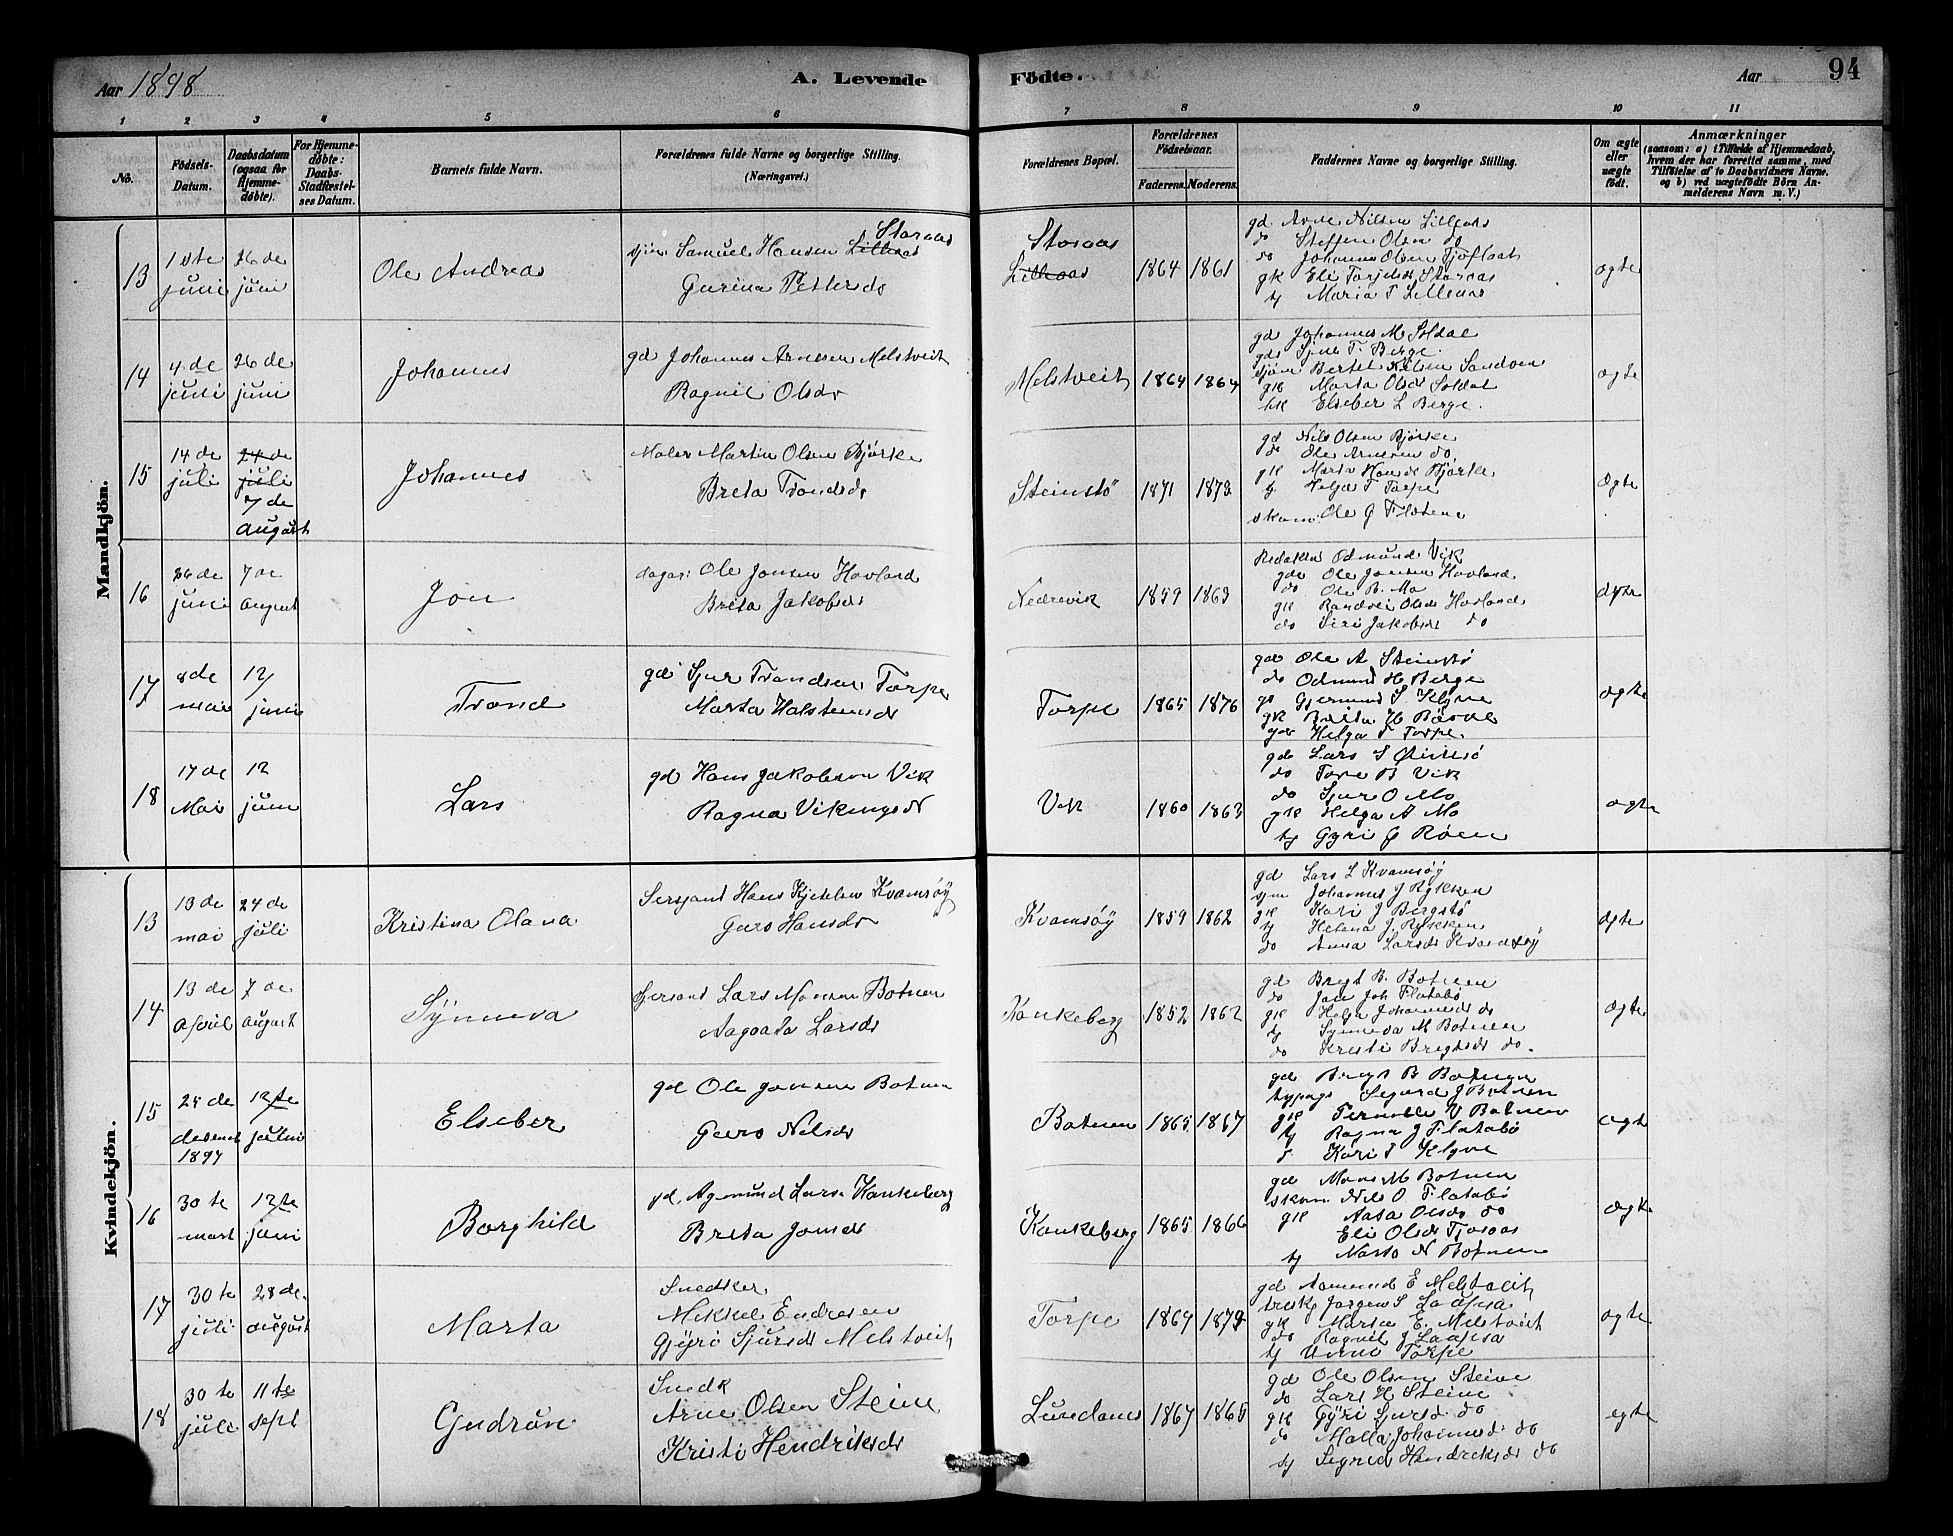 Aar 1898
A. Levende
Födte.
Aar
94
1 2 3 4 5 6 7 8 9 10 11
No.
Födsels-Datum.
Daabsdatum (ogsaa for Hjemme-døbte).
For Hjemme-døbte: Daabs-Stadfæstel-ses Datum.
Barnets fulde Navn.
Forældrenes fulde Navne og borgerlige Stilling. (Næringsvei.)
Forældrenes Bopæl.
Forældrenes Födselsaar.
Faderens. Moderens.
Faddernes Navne og borgerlige Stilling.
Om ægte eller uægte födt.
Anmærkninger
(saasom: a) i Tilfælde af Hjemmedaab, hvem der har forrettet samme, med Tilföielse af to Daabsvidners Navne. og b) ved uægtefödte Börn An-melderens Navn m. V.)
Mandkjön.
13
1ste juni
26 de juni
Ole Andreas
Samuel Hansen Lilleaas Storaas
Gurina Pettersdr
Storaas
Lilleaas
1864 1861
gd Arne Nilsen Lilleaas
do Steffen Olsen do
do Johannes Olsen
gk Eli Torjelsdr Storaas
tj Maria T Lilleaas
ægte
14
4 de juni
26 de juni
Johannes
gd Johannes Arnesen Melstveit
Ragnil Olsdr
Melstveit
1864 1864
gd Johannes M Soldal
gds Sjur T. Berge.
Bertel Nilsen Sandven
gk Marta Olsdr Soldal
hk Elseber L Berge.
ægte
15
14 de juli
24 de juli
7 de august
Johannes
Maler Martin Olsen Bjørke
Breta Trondsdr
Steinstö
1871 1873
gd Nils Olsen Bjørke
do Ole Arnesen do.
gk Marta Hansdr Bjørke
tj Helga T Torpe
skom Ole J Flotene
ægte
16
26 de juni
7 de august
Jon
dagar: Ole Jonsen Hovland
Breta Jakobsdr
Nedrevik
1859 1863
Redaktør Odmund Vik
gdr Ole Jonsen Hovland
do Ole B. Mo
gk Randvei Olsdr Hovland
do Siri Jakobsdr do
ægte
17
8 de mai
12/ juni
Trond
gd Sjur Trondsen Torpe
Marta Halstensdr
Torpe
1865 1876
gd Ole A Steinstø
do Odmund H Berge
gs Gjermund S Klyve
gk Brita H Børve
gdr Helga T Torpe.
ægte
18
17 de Mai
12 juni
Lars
gd Hans Jakobsen Vik
Ragna Vikingsdr
Vik
1860 1863
gd Lars S
do Tore B Vik
do Sjur O Mo
gk Helga A Mo
tj Gyri G Røen
ægte
Kvindekjön.
13
13 de mai
24 de juli
Kristina Olana
Sersjant Hans Kjetilsen Kvamsøy
Guro Hansdr
Kvamsøy
1859 1862
gd Lars L Kvamsøy
Johannes J Rykken
gk Kari J Bergstø
tj Helena J. Rykken
do Anna Larsdr Kvamsøy
ægte
14
13 de April
7 de august
Synneva
Sersant Lars Monsen Botnen
Aagaata Larsdr
Kankeberg
1852 1862
gd Brygt B. Botnen
do Jon Joh Flatabø
gk Helga Johannesdr do
tj Synneva M Botnen
do Kristi Brygtesdr do.
ægte
15
25 de desemb 1897
12/te juni
Elseber
gd Ole Jonsen Botnen
Guro Nilsdr
Botnen
1865 1867
gd Brygt B Botnen
Sigurd J Botnen
gk V Botnen
tj Ragna J Flatabø
Kari T Klyve
ægte
16
30 te mart
12/te juni
Borghild
gd. Agmund Larsn Kankeberg
Breta Jonsdr
Kankeberg
1865 1866
gd Mons M Botnen
skom Nils O Flatabø
gk Aata Olsdr do
Eli Olsdr
tj Marta N Botnen
ægte
17
30 te juli
28 de. august
Marta
Snedker
Mikkel Endresen
Gjyri Sjursdr Melstveit
Torpe
1864 1879
gd Aamund E Melstveit
Jørgen S Laapsa
gk Marta E. Melstveit
do Ragnil J Laapsa
tj Torpe
ægte
18
30 te juli
11 te sept
Gudrun
Snedk
Arne Olsen Steine
Kristi Hendriksdr
Lundanes
1867 1865
gd Ole Olsen Steine
do Lars H Steine
gk Gyri Sjursdr do
do Malla Johannesdr do
tj Sigrid Hendriksdr do
ægte